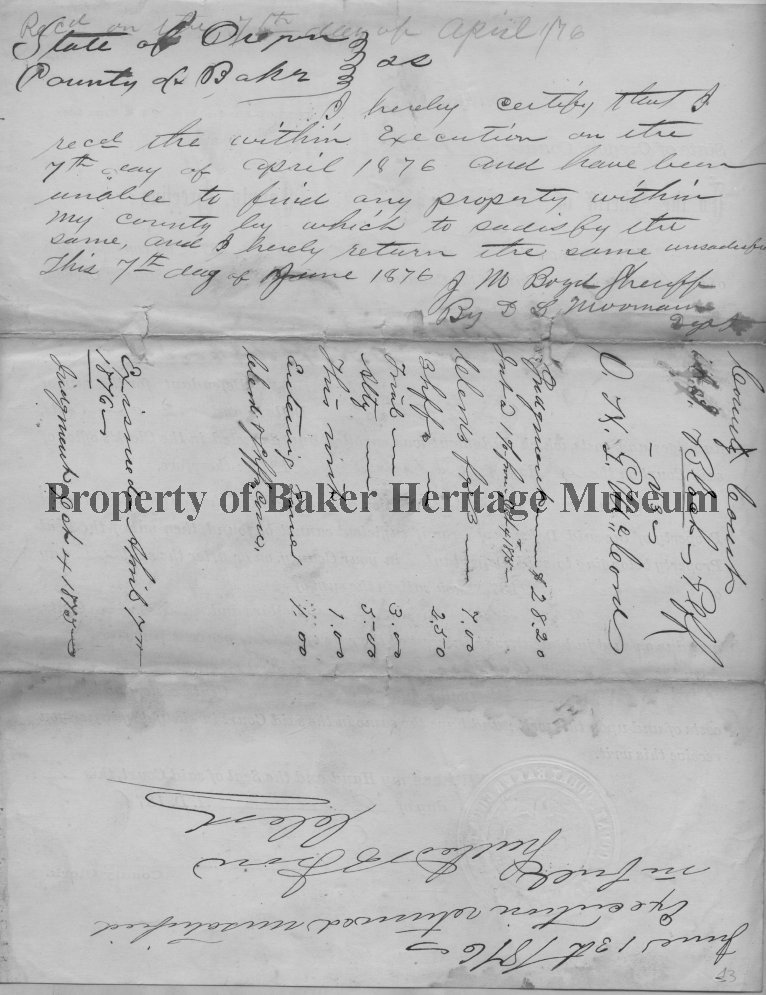 Recd on the 7th day of April 1876
State of Oregon
County of Baker } ss
I hereby certify that I
recd the within Execution on the
7th day of April 1876 and have been
unable to find any property within
my county by which to sadisby the
same, and I hereby return the same unsadisfied
This 7th day of June 1876 J M Boyd Sheriff
By D L Moomaw
Dept
County Court
Bloch Plff
-vs-
Judgment $28.20
Int @ 1 pr
Clerks fees 7.00
Shffs 2.50
Trial 3.00
Atty 5.00
This writ 1.00
Entering Same 1.00
Ex issued April 7th
1876
Judgment Oct 4 1875
Property of Baker Heritage Museum
June 13th 1876
Execution returned unsatisfied
in full
Clerk
43